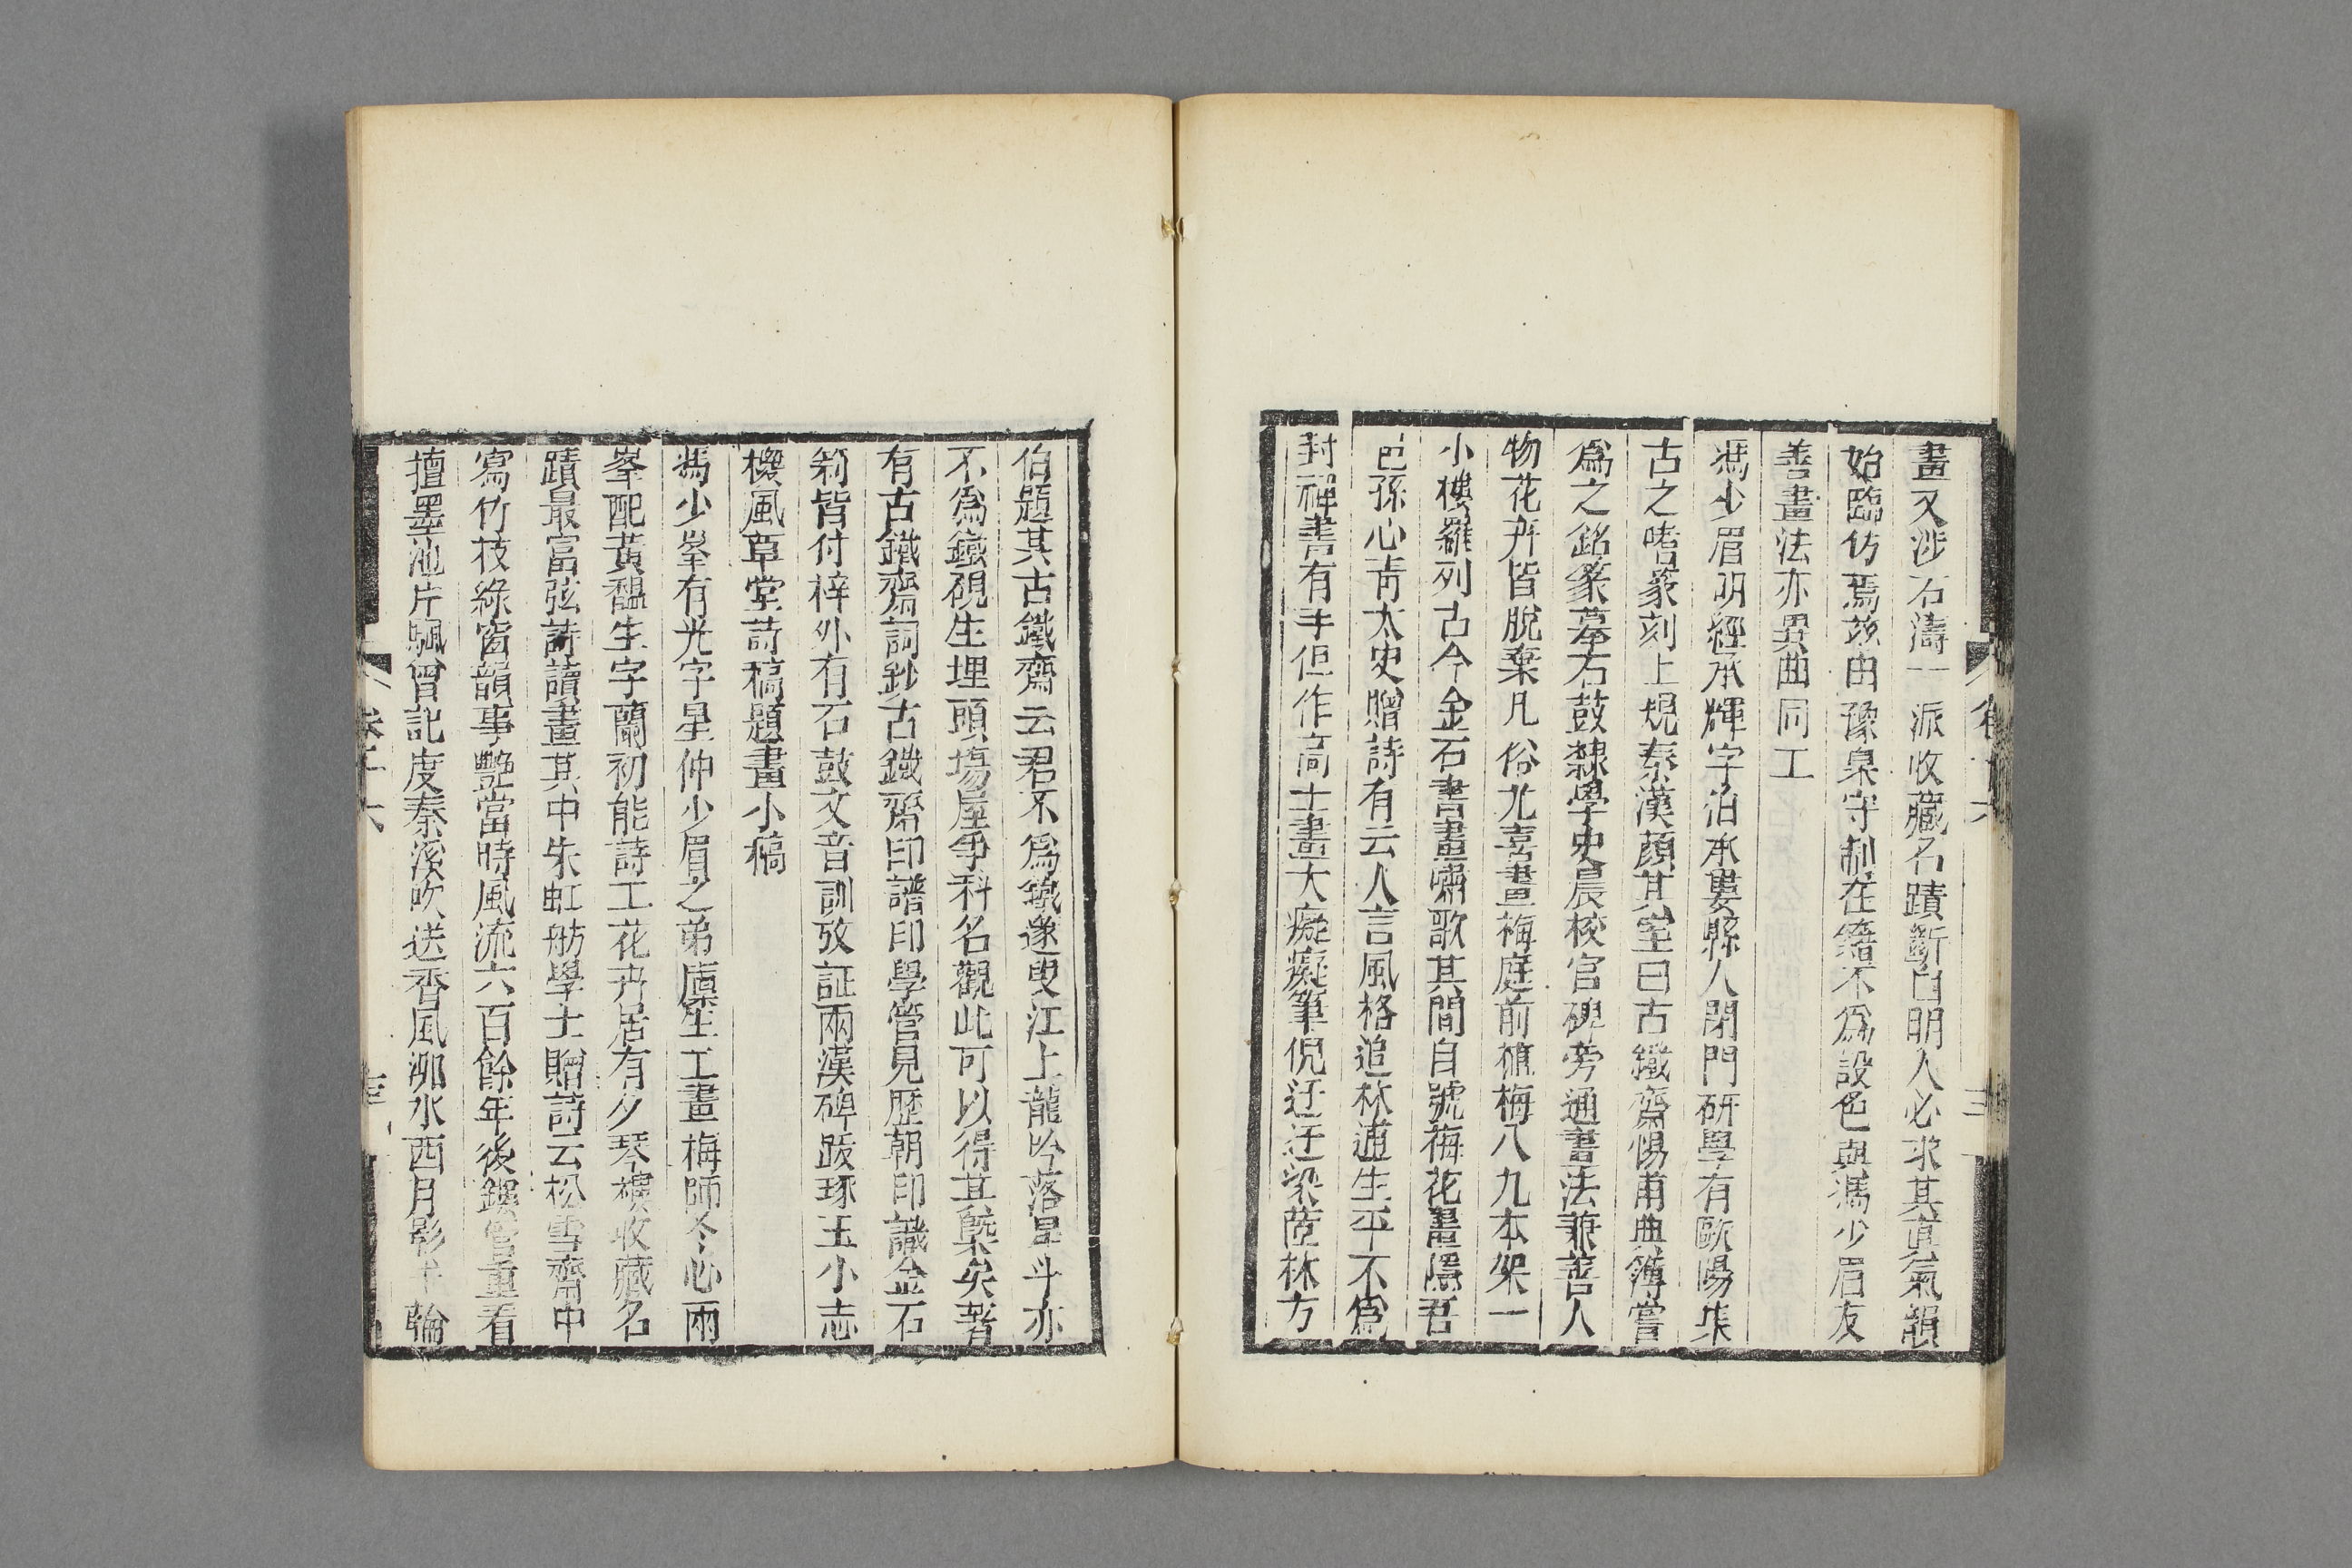 畫又涉石濤一派收藏名蹟斷自明人必求其眞氣韻
始臨仿焉茲由豫臬守制在籍不爲設色與馮少眉友
善畫法亦異曲同工
馮少眉明經承輝字伯承婁縣人閉門研學有歐陽集
古之嗜篆刻上規秦漢顏其室曰古鐵齋惕甫典簿嘗
爲之銘篆摹石鼓隸學史晨校官碑旁通書法兼善人
物花卉皆脫棄凡俗尤喜畫梅庭前植梅八九本架一
小樓羅列古今金石書畫嘯歌其間自號梅花畫隱吾
邑孫心青太史贈詩有云人言風格追林逋生平不爲
封禪書有手但作高士畫大癡癡筆倪迂迂梁茝林方
伯題其古鐵齋云君不爲鐵邃叟江上龍吟落星斗亦
不爲鐵硯生埋頭塲屋爭科名觀此可以得其槩矣著
有古鐵齋詞鈔古鐵齋印譜印學管見歷朝印識金石
莂皆付梓外有石鼓文音訓攷証兩漢碑跋琢玉小志
櫰風草堂詩稿題畫小稿
馮少峯有光字星仲少眉之弟廩生工畫梅師冬心兩
峯配黃馧生字蘭初能詩工花卉居有夕琴樓收藏名
蹟最富弦詩讀畫其中朱虹舫學士贈詩云松雪齋中
寫竹枝綠窗韻事艷當時風流六百餘年後鏍管重看
擅墨池片颿曾記度秦溪吹送香風泖水西月影半輪
卷十六